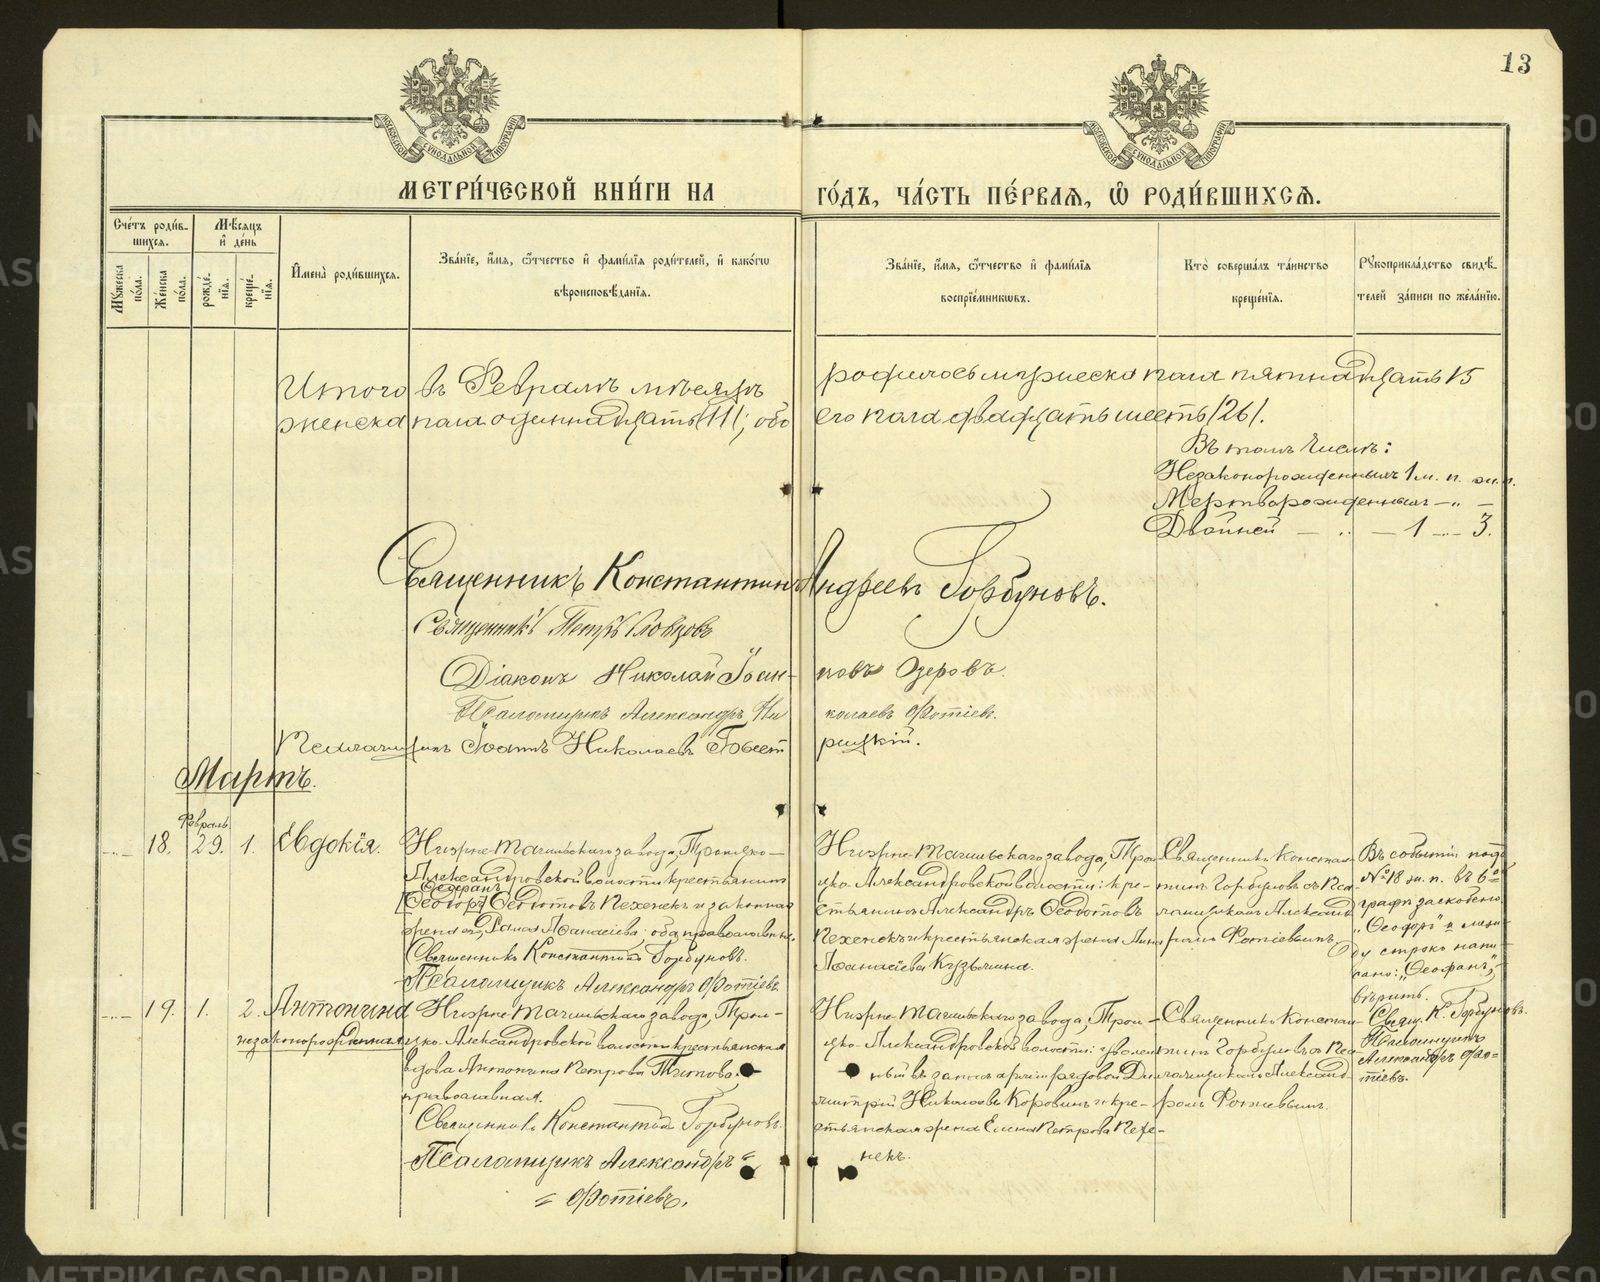 13
МЕТРИ́ЧЕСКОЙ КНИ́ГИ НА ГО́ДЪ, ЧА́СТЬ ПЕ́РВАЯ, Ѡ РОДИ́ВШИХСЯ.
Сче́тъ роди́в-
шихся.
Мѣ́сяцъ
и де́нь
Мꙋ́жеска по́ла.
Же́нска по́ла.
рожде́-
нїя.
креще́-
нїя.
И҆мена̀ роди́вшихся.
Зва́нїе, и҆́мя, ѻ҆́тчество и҆ фами́лїя роди́телей, и҆ како́гѡ
вѣроисповѣ́данїя.
Зва́нїе, и҆́мя, ѻ҆́тчество и҆ фами́лїя
воспрїе́мникѡвъ.
Кто̀ соверша́лъ та́инство
креще́нїя.
Рꙋкоприкла́дство свидѣ́-
телей за́писи по жела́нїю.
Итого въ Февралѣ мѣсяцѣ родилось мужеска пола пятнадцать 15
женска пола одиннадцать (11); обо его пола двадцать шесть (26).
Въ томъ числѣ:
Незаконорожденныхъ 1 м. п. ж. п.
Мертворожденныхъ — „ —
Двойней — „ — 1 — 3.
Священникъ Константинъ Андреевъ Горбуновъ.
Священникъ Петръ Словцовъ
Дiаконъ Николай Iоан- новъ Озеровъ.
Псаломщикъ Александръ Ни колаевъ Фотiевъ.
Псаломщикъ Iоаннъ Николаевъ Бобет рицкiй.
Мартъ.
Февраль
18. 29. 1. Евдокiя.
Нижне-Тагильскаго завода, Троицко-
Александровской волости крестьянинъ
Ѳеофанъ
[Ѳеодоръ] Ѳеодотовъ Пехенекъ и законная
жена его, Раиса Аѳанасiева: оба православные.
Священникъ Константинъ Горбуновъ.
Псаломщикъ Александръ Фотiевъ.
Нижне-Тагильскаго завода, Трои-
цко-Александровской волости: кре-
стьянинъ Александръ Ѳеодотовъ
Пехенекъ и крестьянская жена Анна
Аѳанасiева Кузьмина.
Священникъ Констан-
тинъ Горбуновъ съ Пса-
ломщикомъ Александ-
ромъ Фотiевымъ.
Въ событiи подъ
№ 18 ж. п. въ 6ой
графѣ заскоблено
„Ѳеодоръ" и между
строкъ напи-
сано: „Ѳеофанъ",
вѣрить.
Свящ. К. Горбуновъ.
Псаломщикъ
Александръ Фо-
тiевъ.
19. 1. 2. Антонина
незаконорожденная
Нижне-Тагильскаго завода, Трои-
цко-Александровской волости крестьянская
вдова Антонина Петрова Титова.
православная.
Священникъ Константинъ Горбуновъ.
Псаломщикъ Александръ =
= Фотiевъ.
Нижне-Тагильскаго завода, Трои-
цко-Александровской волости: уволен
ный въ запасъ армiи рядовой Ди
митрiй Николаевъ Коровинъ и кре-
стьянская жена Елена Петрова Пехе-
некъ.
Священникъ Констан-
тинъ Горбуновъ съ Пса
ломщикомъ Александ-
ромъ Фотiевымъ.
METRIKI.GASO-URAL.RU